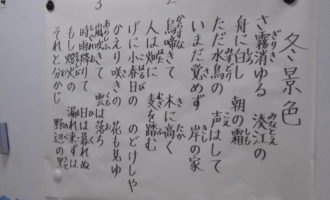 冬景色
さ霧消ゆる 湊江の
舟に白し 朝の霜
ただ水鳥の 声はして
いまだ覚めず 岸の家
烏啼きて 木に高く
人は畑に 麦を踏む
げに小春日の のどけしや
かえり咲きの 花も見ゆ
嵐吹きて 雲は落ち
時雨降りて 日は暮れぬ
もし燈火の 漏れ来ずば
それと分かじ 野辺の里